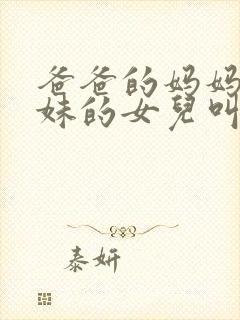 爸爸的妈妈
妹的女兒叫
泰妍